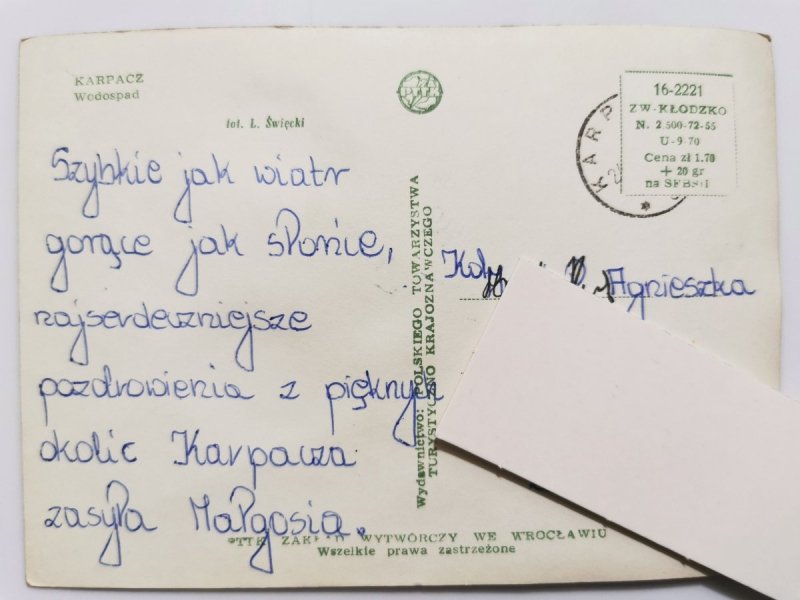 KARPACZ
Wodospad
PTTK
fot. L. Święcki
16-2221
ZW-KŁODZKO
N. 2.500-72-55
U-9-70
Cena zł 1.70
+ 20 gr
na SFBSiI
KARP
Szybkie jak wiatr
gorące jak słońce,
najserdeczniejsze
pozdrowienia z pięknych
okolic Karpacza
zasyła Małgosia.
Wydawnictwo: POLSKIEGO TOWARZYSTWA
TURYSTYCZNO KRAJOZNAWCZEGO
Agnieszka
PTTK ZAKŁAD WYTWÓRCZY WE WROCŁAWIU
Wszelkie prawa zastrzeżone